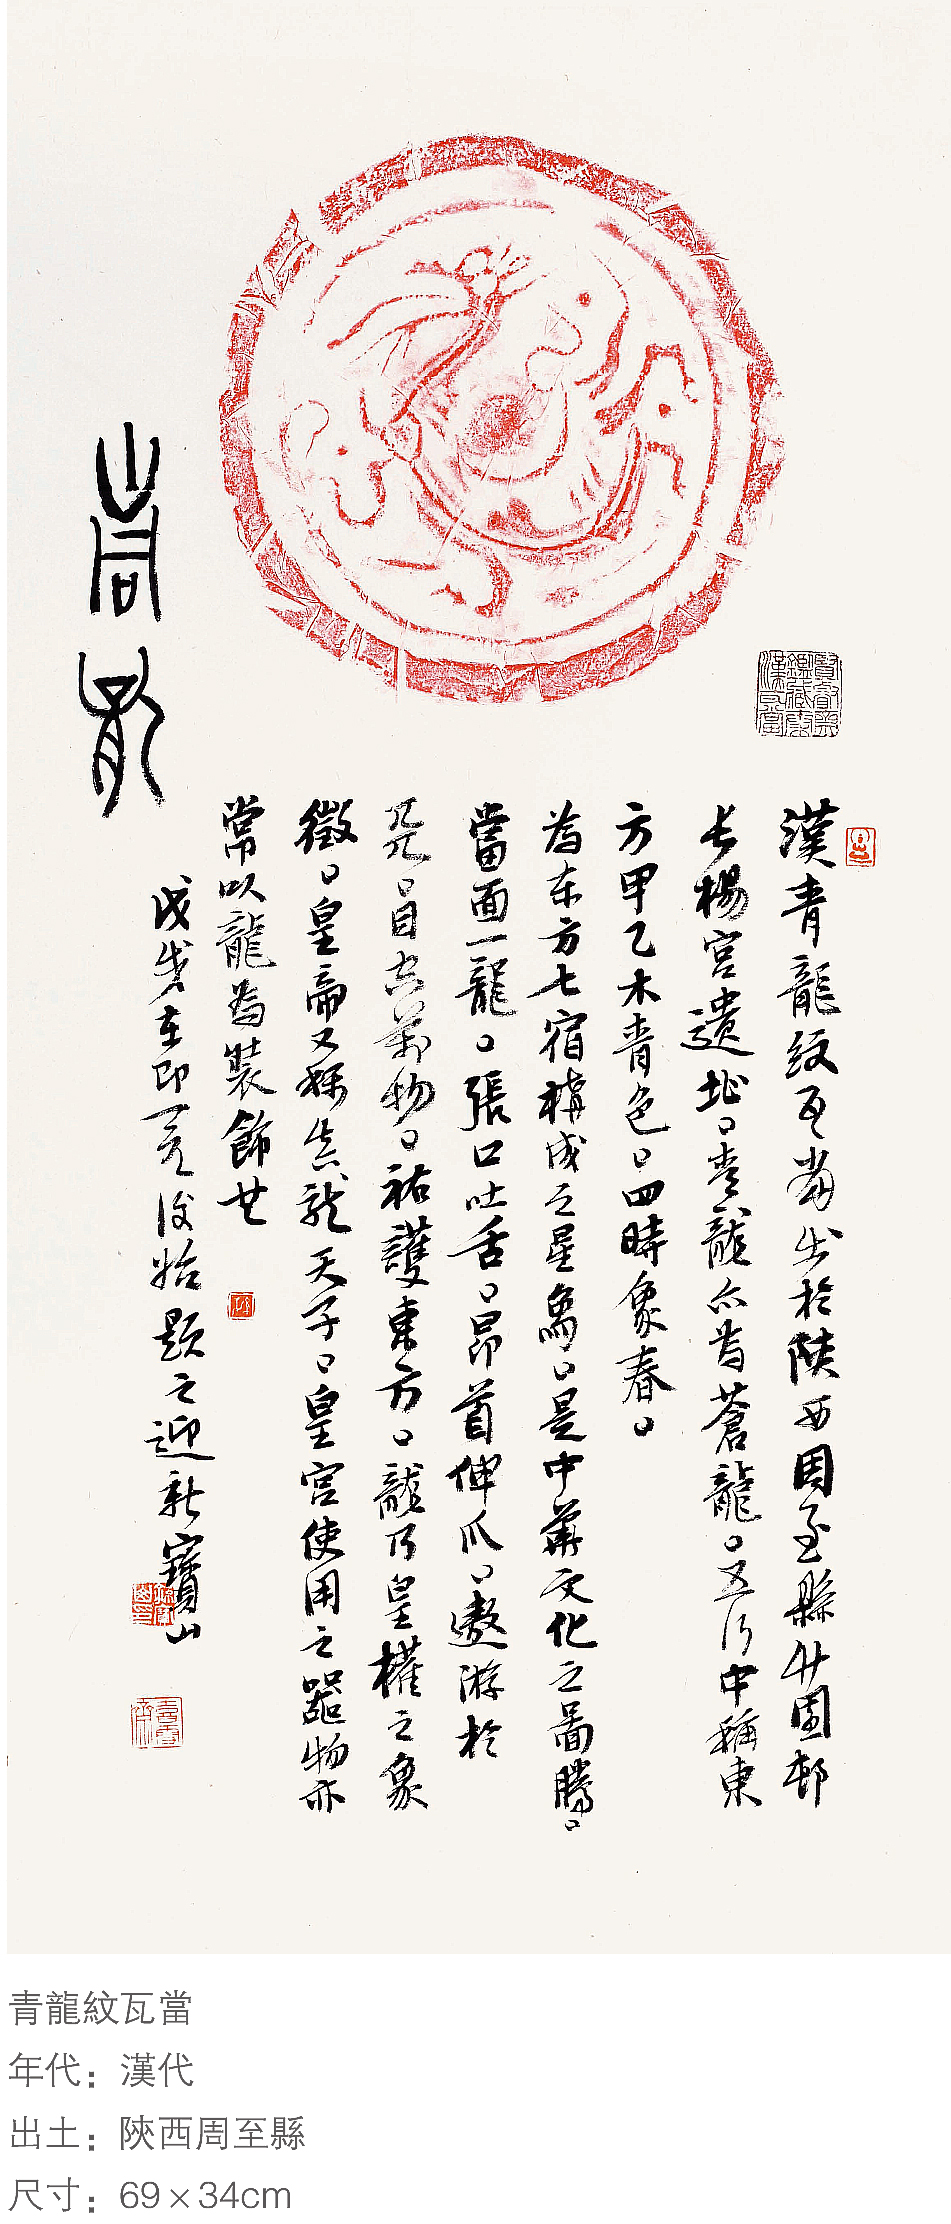 尚龍
漢青龍紋瓦當出於陝西周至縣竹園邨
長楊宮遺址。青龍亦為蒼龍。五行中稱東
方甲乙木青色。四時象春。
為东方七宿構成之星象。是中華文化之圖騰。
當面一龍。張口吐舌。昂首伸爪。遨游於
。目空萬物。祐護東方。龍乃皇權之象
徵。皇帝又稱真龍天子。皇宮使用之器物亦
常以龍為裝飾也
戊戌年即元後始題之迎新寶山
青龍紋瓦當
年代：漢代
出土：陝西周至縣
尺寸：69×34cm